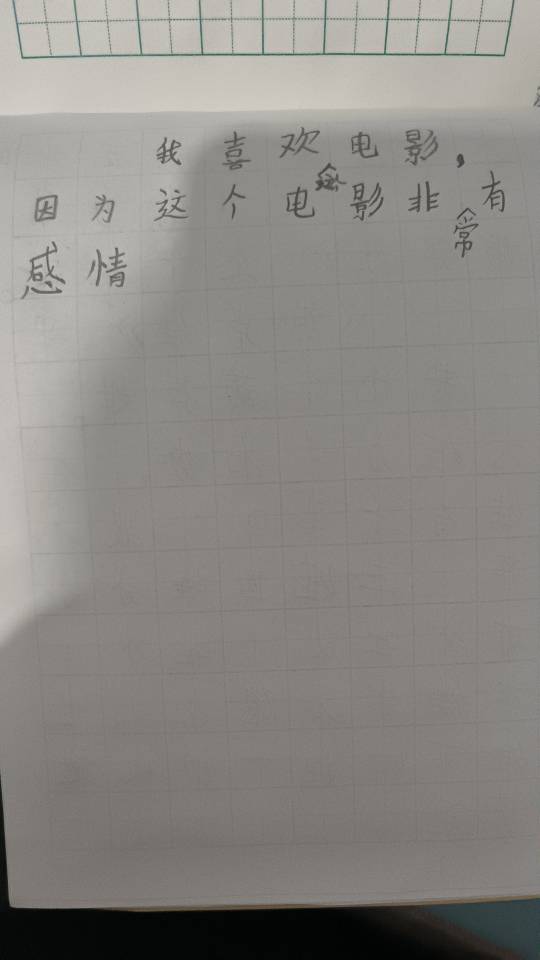 我喜欢电影，
因为这个电影非常有
感情